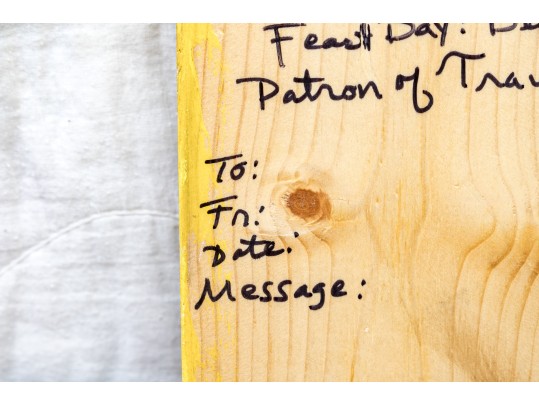 Feast Day:
Patron of
To:
Fr:
Date:
Message: